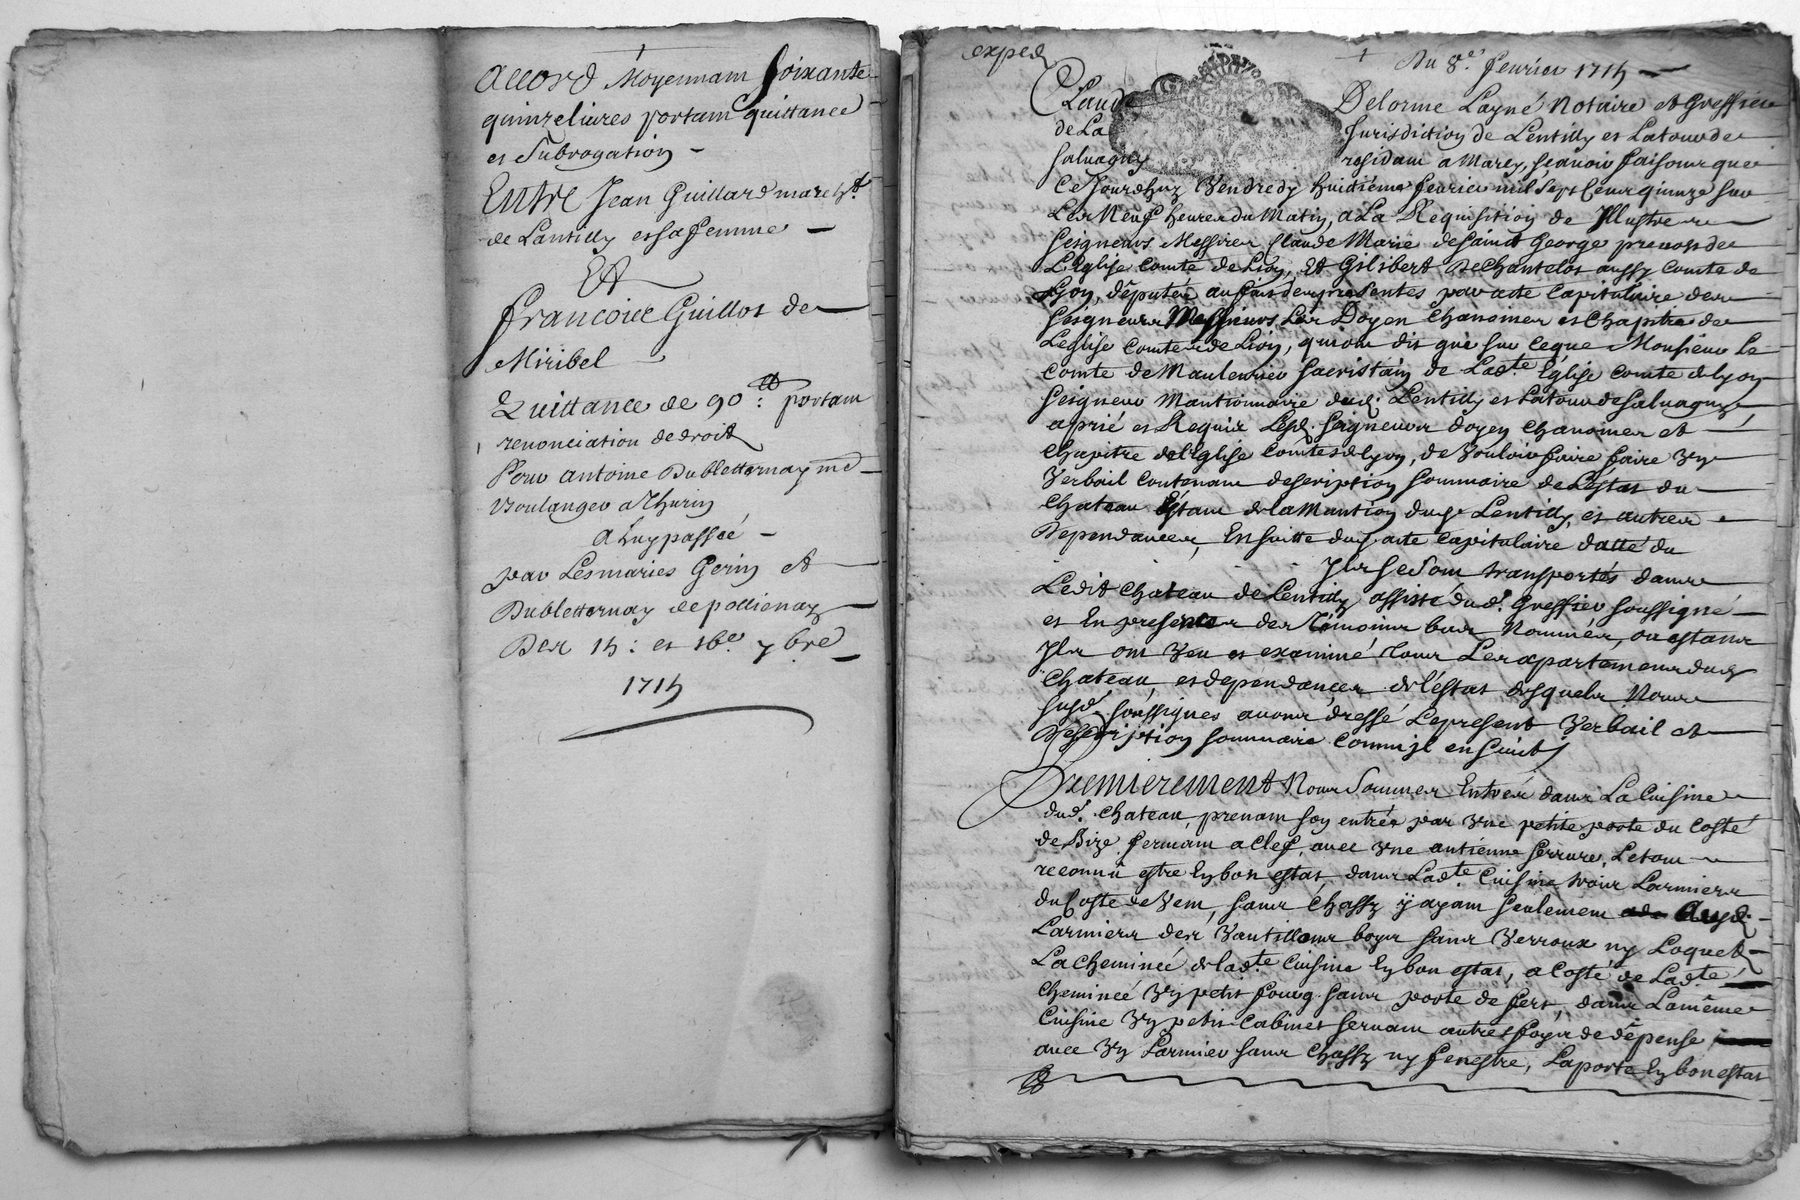 Accord Moyennam soixante
quinzeliures portam quittance
et Subrogation
Entre Jean Guillard march.t
de Lantilly et sa femme
Et
francoise Guillot de
Miribel
Quittance de 90 ₶: portam
renonciation de droit
Pour antoine Dubletternay md
Boulanger a Thurin
a Luy passée
par Lesmaries Gerin et
Dubletternay de pollienay
Des 15: et 16e 7bre
1715
exped
Du 8.e fevrier 1715
Claude Delorme Layné Notaire et Greffier
de La Jurisdiction de Lentilly et Latour de
Saluagny residant a Marcy, scauoir faisons que
Cejourdhuy Vendredy huictiéme feurier mil Sept Cent quinze sur
Les Neuf heures du Matin, a La Requisition de Jllustres
Seigneurs Messires Claude Marie de saint George precenteur de
L'Eglise Comte de Lion, Et Gilibert De Chantelot aussy Comte de
Lyon, députés au fait des presentes par acte Capitulaire des
Seigneurs Messieurs Les Doyen Chanoines et Chapitre de
L'eglise Comtes de Lion, qui ont dit que sur ceque Monsieur le
Comte de Maulevrier Sacristain de Lad.te Eglise Comte de Lyon
Seigneur Mantionnaire dud. Lentilly et Latour de Saluagny
a prié et Requis Lesd. Seigneurs doyen chanoines et
Chapitre de l'Eglise Comtes de Lyon, de Vouloir faire faire Vn
Verbail Contenant description Sommaire de L'estat du
Chateau Estant de la Mantion dud. Lentilly, et autres
Dependances, Ensuitte dud. acte Capitulaire datté du
Jls se sont transportés dans
Ledit Chateau de Lentilly assisté dud. Greffier soussigné
et En presence des Témoins bas Nommés, ou estant
Jls ont Veu et examiné Tous Les apartements dud.
Chateau, et dependances de l'estat desquels Nous
susd. soussignes auons dressé Le present Verbail et
Description sommaire Comm'jl ensuit
Premierement Nous Sommes Entrés dans La Cuisine
dud. Chateau, prenant son entrée par Vne petite porte du costé
de Bize fermant a Clef, auec Vne antienne serrure, Le tout
reconnû estre En bon estat, dans Lad.te Cuisine trois Larmiers
du Costé de Vent, sans Chassy y ayant seulement Ausd.
Larmiers des Vantillons boys sans Verroux ny Loquet
La Cheminée de lad.te Cuisine En bon estat, a Costé de Lad.te
Cheminée Vn petit fourg sans porte de fert, dans La même
Cuisine Vn petit Cabinet seruant autresfoys de dépense
auec Vn Larmier sans Chassy ny fenestre, La porte En bon estat